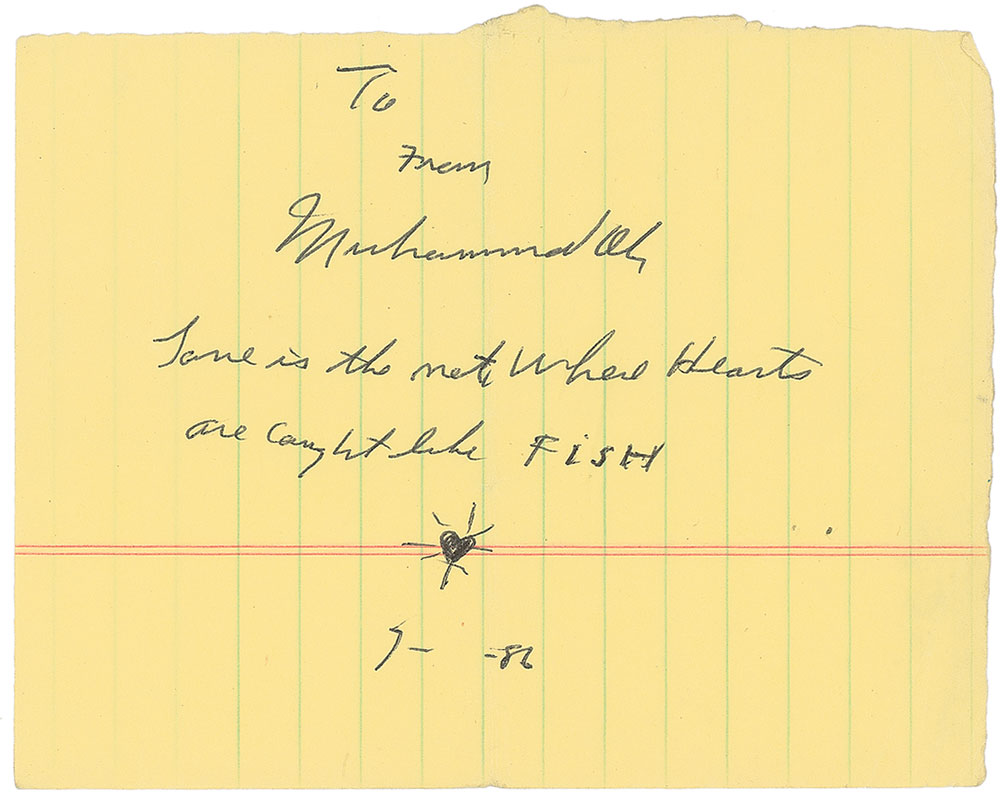 To
From
Muhammad Ali
Love is the net, Where Hearts
are caught like FISH
9- -86